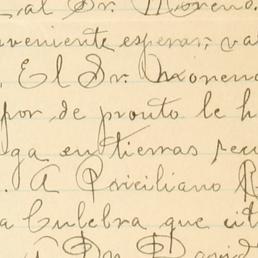 al Sr. Moreno.
veniente esperar, va
. El Sr. Moreno
por de pronto le h
ga en tierras recu
. A Prisciliano R
a Culebra que cit
A Dn. David